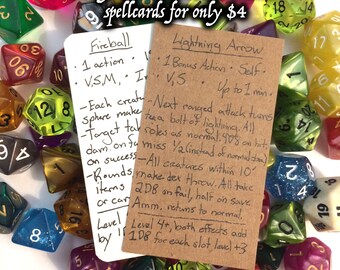 spellcards for only $4
Fireball
1 action
V,S,M,
-Each creat
sphere make
-Target tak
dam. on fa
on success
-Rounds
items
or car
Level
by 1
Lightning Arrow
1 Bonus Action · Self·
V,S Up to 1 min.
-Next ranged attack turns
to a bolt of lightning. All
roles as normal. 4D8 on hit,
miss 1/2 instead of normal dam.
-All creatures within 10'
make dex throw. All take
2D8 on fail, half on save
Amm. returns to normal.
Level 4+, both effects add
1D8 for each slot level +3